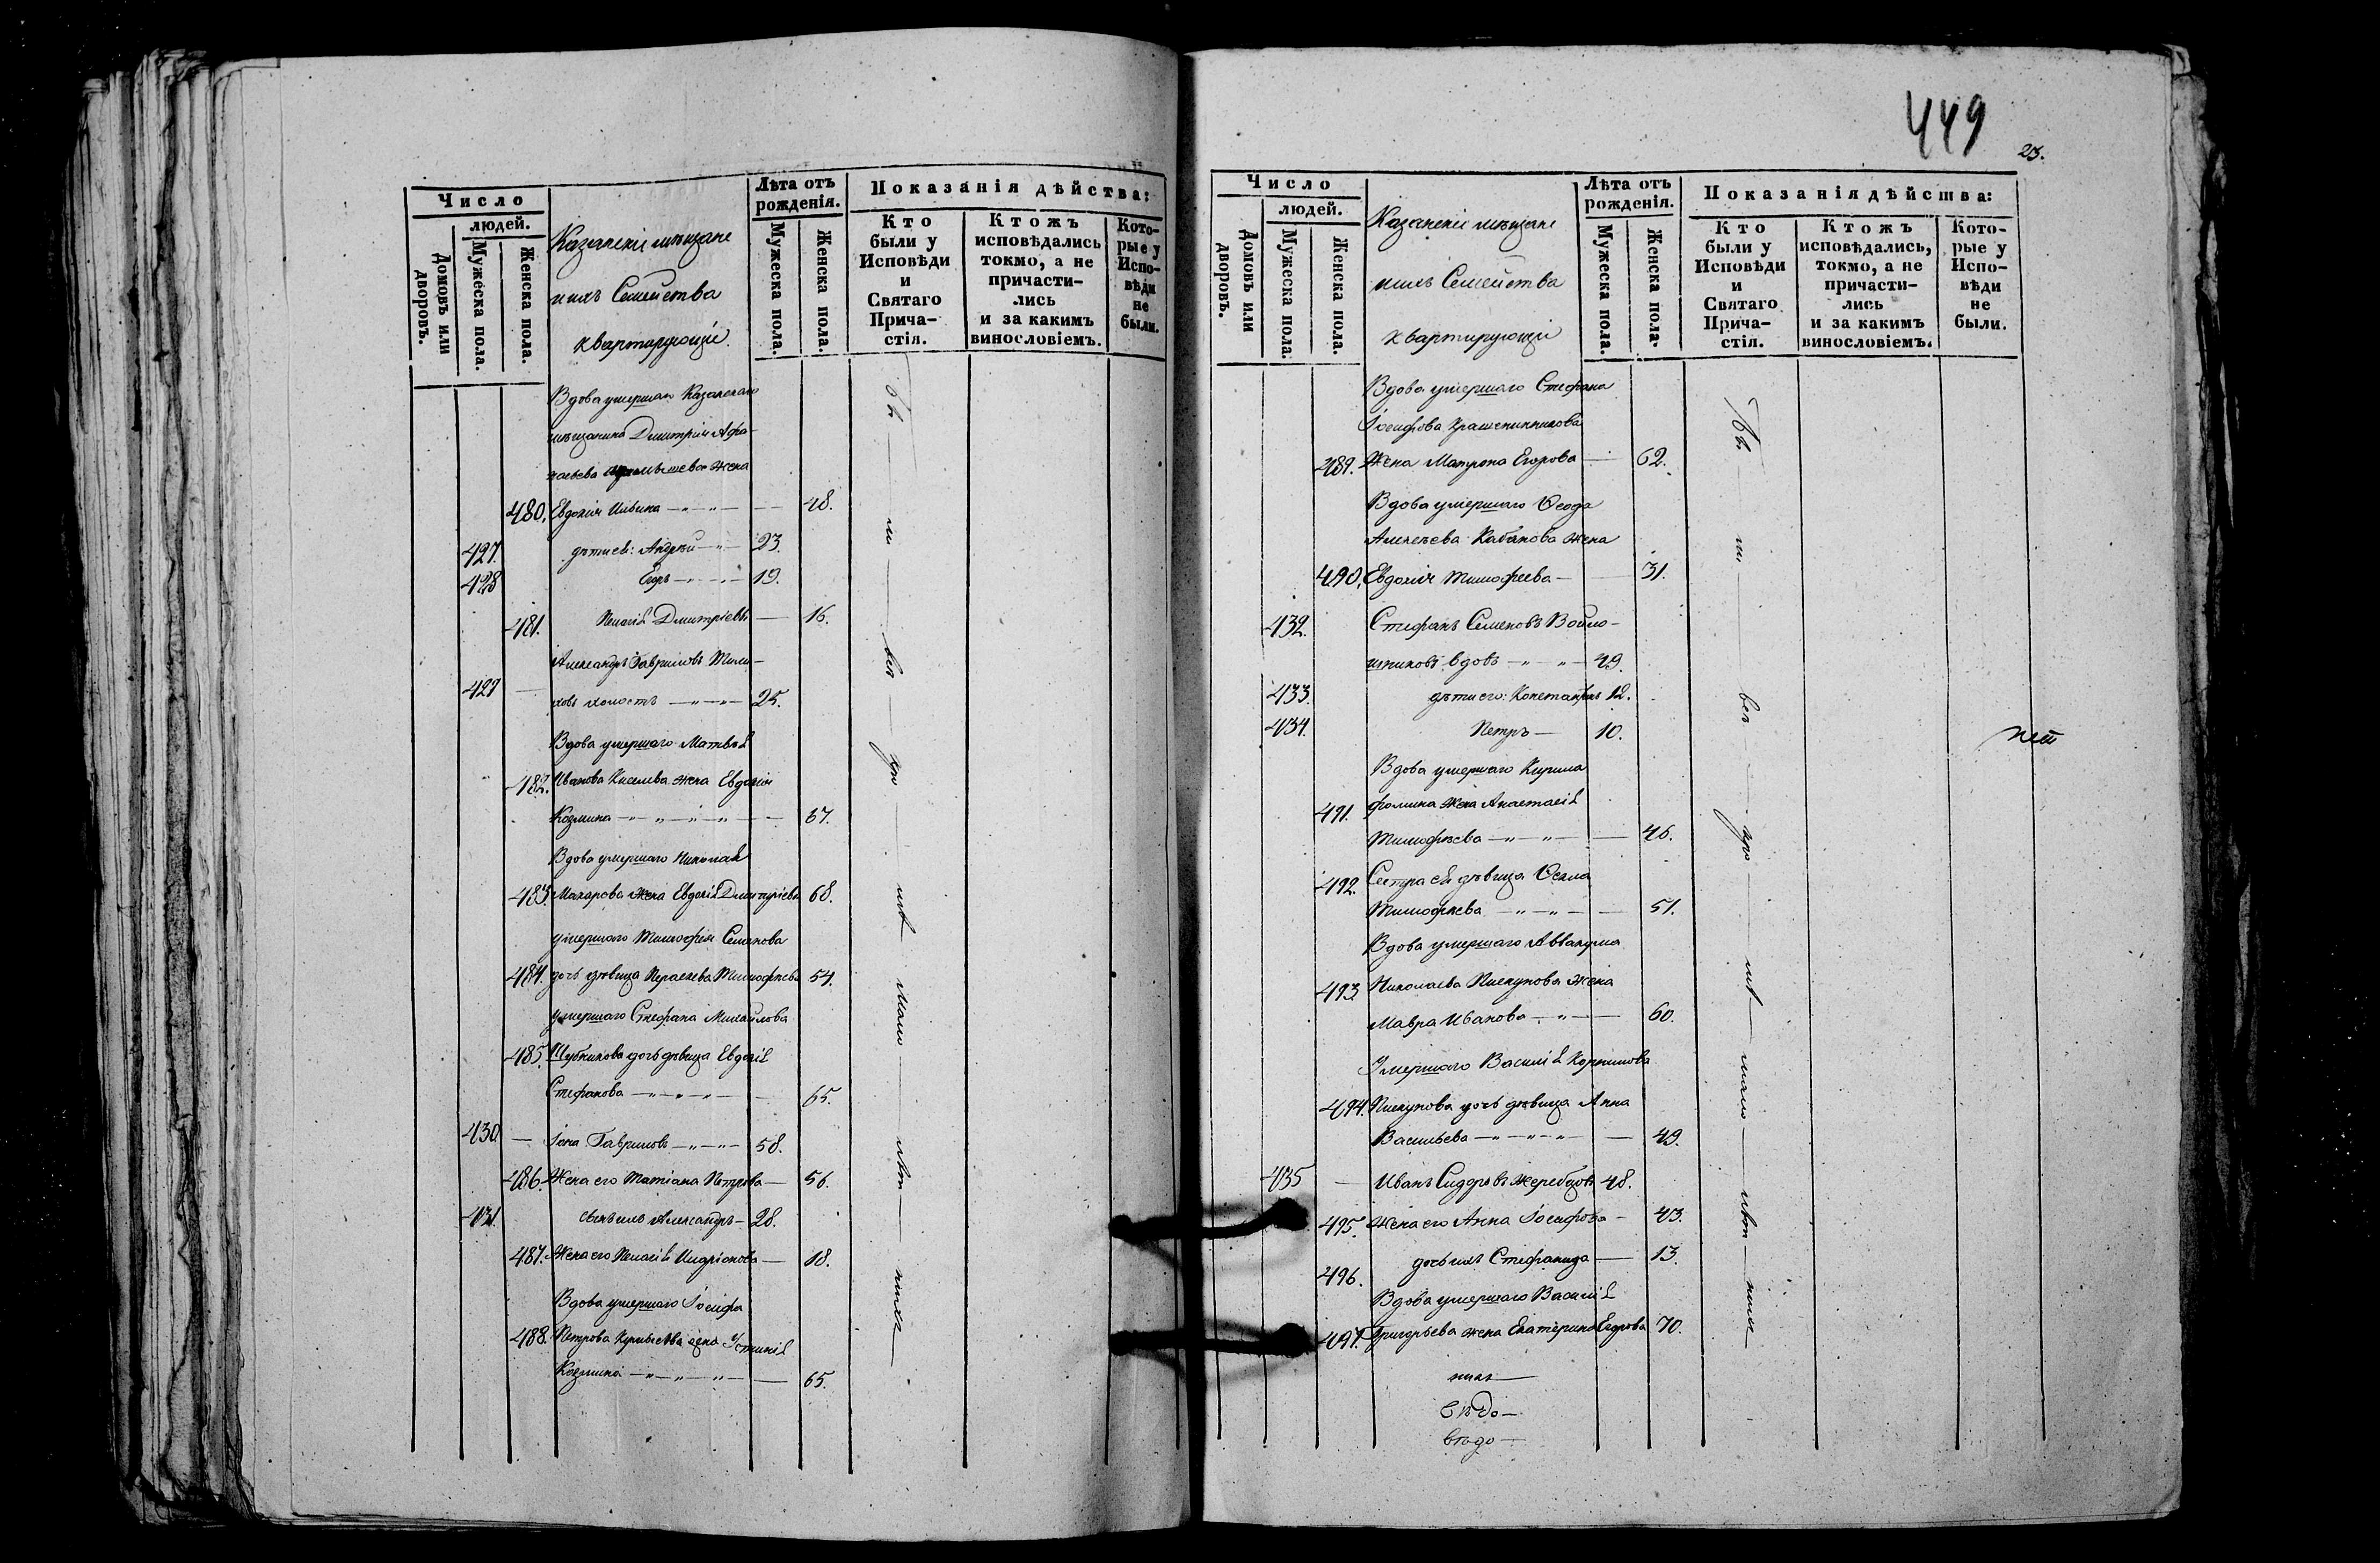 Число
людей.
Домовъ или дворовъ.
Мужеска пола.
Женска пола.
Казанскіе мѣщане
и ихъ Семейства
квартирующіе.
Лѣта отъ
рожденія.
Мужеска пола.
Женска пола.
Показанія дѣйства:
Кто
были у
Исповѣди
и
Святаго
Прича-
стія.
Ктожъ
исповѣдались
токмо, а не
причасти-
лись
и за какимъ
винословіемъ.
Кото-
рые у
Испо-
вѣди
не
были.
Вдова умершаго Казанскаго
мѣщанина Димитрія Афа-
насьева жена
480. Евдокія Ильина — „ — „ — 48.
427. дѣти ея: Андрей — „ — 23.
428 Егоръ — „ — „ — 19.
481. Пелагія Димитріевы — 16.
Александръ Гавриловъ
429 — холостъ — „ — „ — 25.
Вдова умершаго Матвѣя
482. Иванова Киселева жена Евдокія
Козмина — „ — „ — „ — „ — 67.
Вдова умершаго Николая
483. Макарова жена Евдокія Димитріева 68.
умершаго Тимофея Семенова
484. дочь дѣвица Параскева Тимофѣева 54.
умершаго Стефана Михайлова
485. Шубникова дочь дѣвица Евдокія
Стефанова — „ — „ — „ — 65.
430. — Іона Гавриловъ — „ — „ — 58.
486. Жена его Татіана Петрова — 56.
431. сынъ ихъ Александръ — 28.
487. Жена его Пелагія — 18.
Вдова умершаго Іосифа
488. Петрова жена Устинія
Козмина — „ — „ — „ — 65.
449
23.
Число
людей.
Домовъ или дворовъ.
Мужеска пола.
Женска пола.
Казанскіе мѣщане
и ихъ Семейства
квартирующіе
Лѣта отъ
рожденія.
Мужеска пола.
Женска пола.
Показанія дѣйства:
Кто
были у
Исповѣди
и
Святаго
Прича-
стія.
Ктожъ
исповѣдались,
токмо, а не
причасти-
лись
и за какимъ
винословіемъ.
Кото-
рые у
Испо-
вѣди
не
были.
Вдова умершаго Стефана
Іосифова Крашенинникова
489. Жена Матрона Егорова — 62.
Вдова умершаго Ѳеодора
Алексѣева Кабанова жена
490. Евдокія Тимофеева — 31.
432. Стефанъ Семеновъ Войло-
шниковъ вдовъ — „ — „ — 49.
433. дѣти его: Константинъ 12.
434. Петръ — 10.
Вдова умершаго Кирила
491. Фомина жена Анастасія
Тимофѣева — „ — „ — 46.
492. Сестра ея дѣвица Ѳекла
Тимофѣева — „ — „ — 51.
Вдова умершаго Аввакума
493 Николаева Пискунова жена
Мавра Иванова — „ — 60.
Умершаго Василія Корнилова
494. Пискунова дочь дѣвица Анна
Васильева — „ — „ — „ — 49.
435 — Иванъ Сидоровъ Жеребцовъ 48.
495. Жена его Анна Іосифова — 43.
496. дочь ихъ Стефанида — 13.
Вдова умершаго Василія
497. Григорьева жена Екатерина Егорова 70.